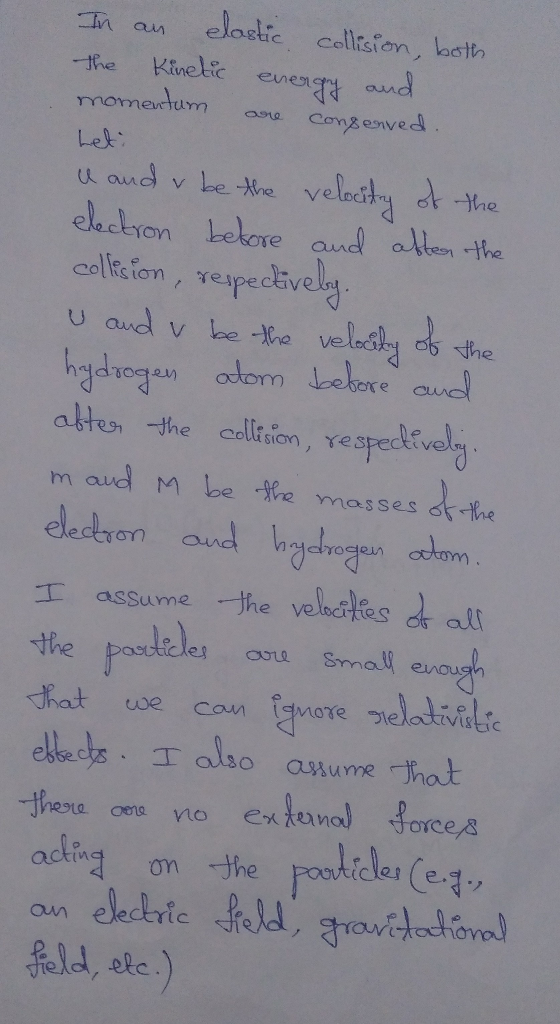 In an elastic collision, both
the Kinetic energy and
momentum are conserved.
Let:
u and v be the velocity of the
electron before and after the
collision, respectively.
U and V be the velocity of the
hydrogen atom before and
after the collision, respectively.
m and M be the masses of the
electron and hydrogen atom.
I assume the velocities of all
the particles are small enough
that we can ignore relativistic
effects. I also assume that
there are no external forces
acting on the particles (e.g.,
an electric field, gravitational
field, etc.)